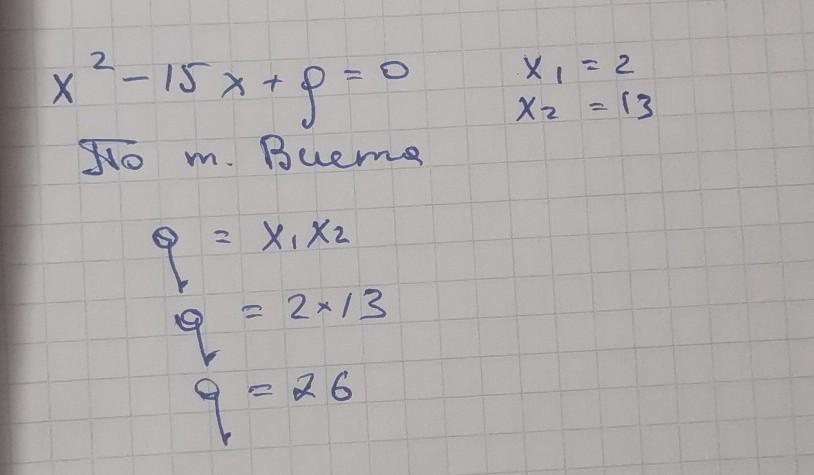 x² - 15x + q = 0
x₁ = 2
x₂ = 13
По т. Виета
q = x₁x₂
q = 2×13
q = 26